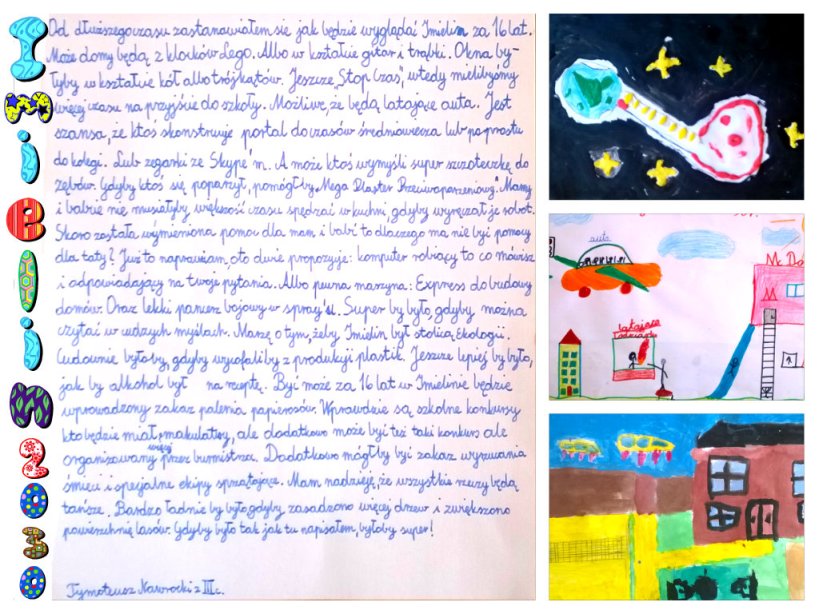 Imielin 2030
Od dłuższego czasu zastanawiałem się jak będzie wyglądał Imielin za 16 lat.
Może domy będą z klocków Lego. Albo w kształcie gitar i trąbki. Okna by-
łyby w kształcie kół albo trójkątów. Jeszcze „Stop Czas", wtedy mielibyśmy
więcej czasu na przyjście do szkoły. Możliwe, że będą latające auta. Jest
szansa, że ktoś skonstruuje portal do czasów średniowiecza lub po prostu
do kolegi. Lub zegarki ze Skype'm. A może ktoś wymyśli super szczoteczkę do
zębów. Gdyby ktoś się poparzył, pomógłby „Mega Plaster Przeciwoparzeniowy". Mamy
i babcie nie musiałyby większość czasu spędzać w kuchni, gdyby wyręczał je robot.
Skoro została wymieniona pomoc dla mam i babć to dlaczego ma nie być pomocy
dla taty? Już to naprawiam, oto dwie propozycje: komputer robiący to co mówisz
i odpowiadający na twoje pytania. Albo pewna maszyna: Express do budowy
domów. Oraz lekki pancerz bojowy w spray'u. Super by było, gdyby można
czytać w cudzych myślach. Marzę o tym, żeby Imielin był stolicą Ekologii.
Cudownie byłoby, gdyby wycofaliby z produkcji plastik. Jeszcze lepiej by było,
jak by alkohol był na receptę. Być może za 16 lat w Imielinie będzie
wprowadzony zakaz palenia papierosów. Wprawdzie są szkolne konkursy
kto będzie miał więcej makulatury, ale dodatkowo może być też taki konkurs ale
organizowany przez burmistrza. Dodatkowo mógłby być zakaz wyrzucania
śmieci i specjalne ekipy sprzątające. Mam nadzieję, że wszystkie rzeczy będą
tańsze. Bardzo ładnie by było gdyby, zasadzono więcej drzew i zwiększono
powierzchnię lasów. Gdyby było tak jak tu napisałem, byłoby super!
Tymoteusz Nawrocki z III c.
auta
Mc Do
latające